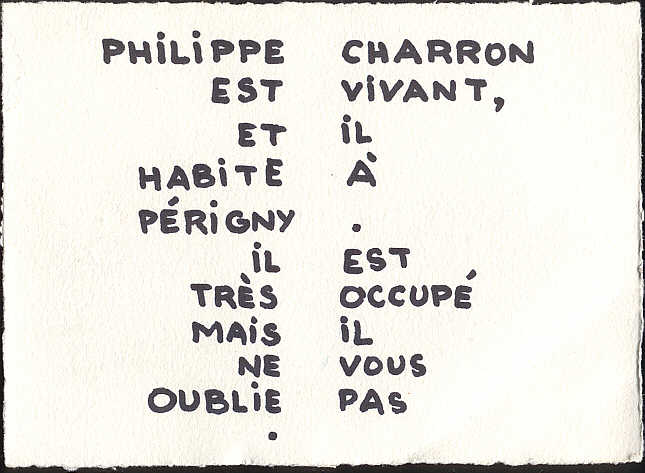 PHiLiPPE CHARRON
EST ViVANT,
ET iL
HABiTE À
PÉRiGNY .
iL EST
TRÈS OCCUPÉ
MAiS iL
NE VOUS
OUBLiE PAS
.